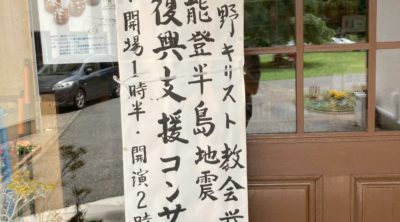 野キリスト教会堂
能登半島地震
復興支援コンサ
開場1時半・開演2時